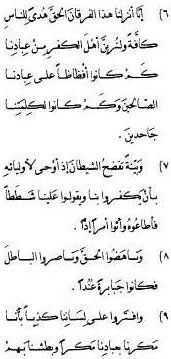 ٦) إنّا أنزلنا هذا الفرقان الحقّ هُدىً للناس
كافّةً ولنُري أهل الكفر من عبادنا
كم كانوا أفظاظاً على عبادنا
الصالحين وكم كانوا لكلمتنا
جاحدين.
٧) وبيّنةً تفضحُ الشيطان إذ أوحى لأوليائه
بأن كفروا بنا ويقولوا علينا شططاً
فأطاعوه وأتوا أمراً إدّاً.
٨) وناهضوا الحقّ وناصروا الباطل
فكانوا جبابرةً عُنُداً.
٩) وافتروا على لساننا كذباً بأنّا
مكرنا بعبادنا مكراً وبطشنا بهم